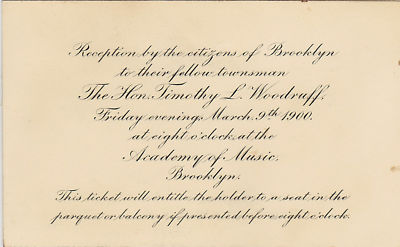 Reception by the citizens of Brooklyn
to their fellow townsman
The Hon. Timothy L. Woodruff.
Friday evening, March 9th 1900.
at eight o'clock at the
Academy of Music.
Brooklyn.
This ticket will entitle the holder to a seat in the
parquet or balcony if presented before eight o'clock.